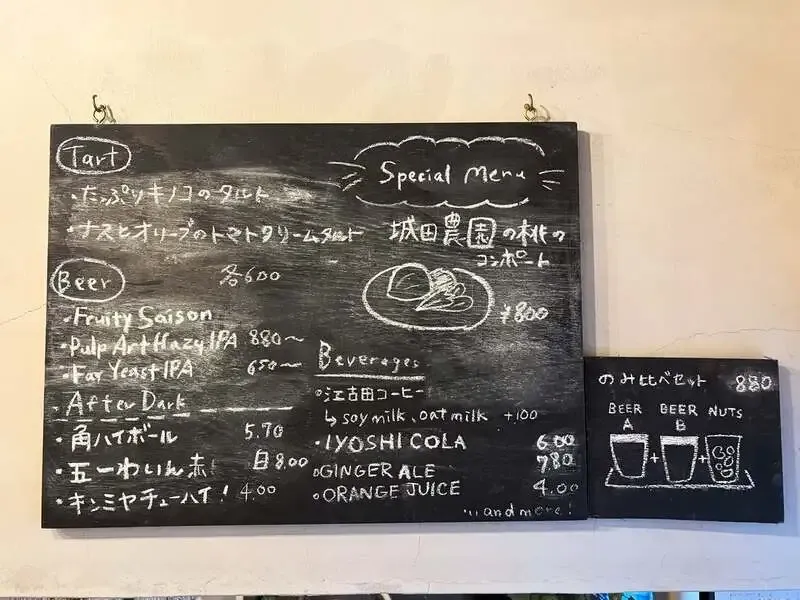 Tart
・たっぷりキノコのタルト
・ナスとオリーブのトマトクリームタルト
各600
Beer
・Fruity Saison
・Pulp Art Hazy IPA 880〜
・Far Yeast IPA 650〜
・After Dark
・角ハイボール 5.70
・五一わいん赤! 白 8.00
・キンミヤチューハイ! 4.00
Special Menu
城田農園の桃の
コンポート
¥800
Beverages
・江古田コーヒー
↳ soy milk, oat milk +100
・IYOSHI COLA 600
・GINGER ALE 780
・ORANGE JUICE 4.00
...and more!
のみ比べセット 880
BEER BEER NUTS
A B
+ +